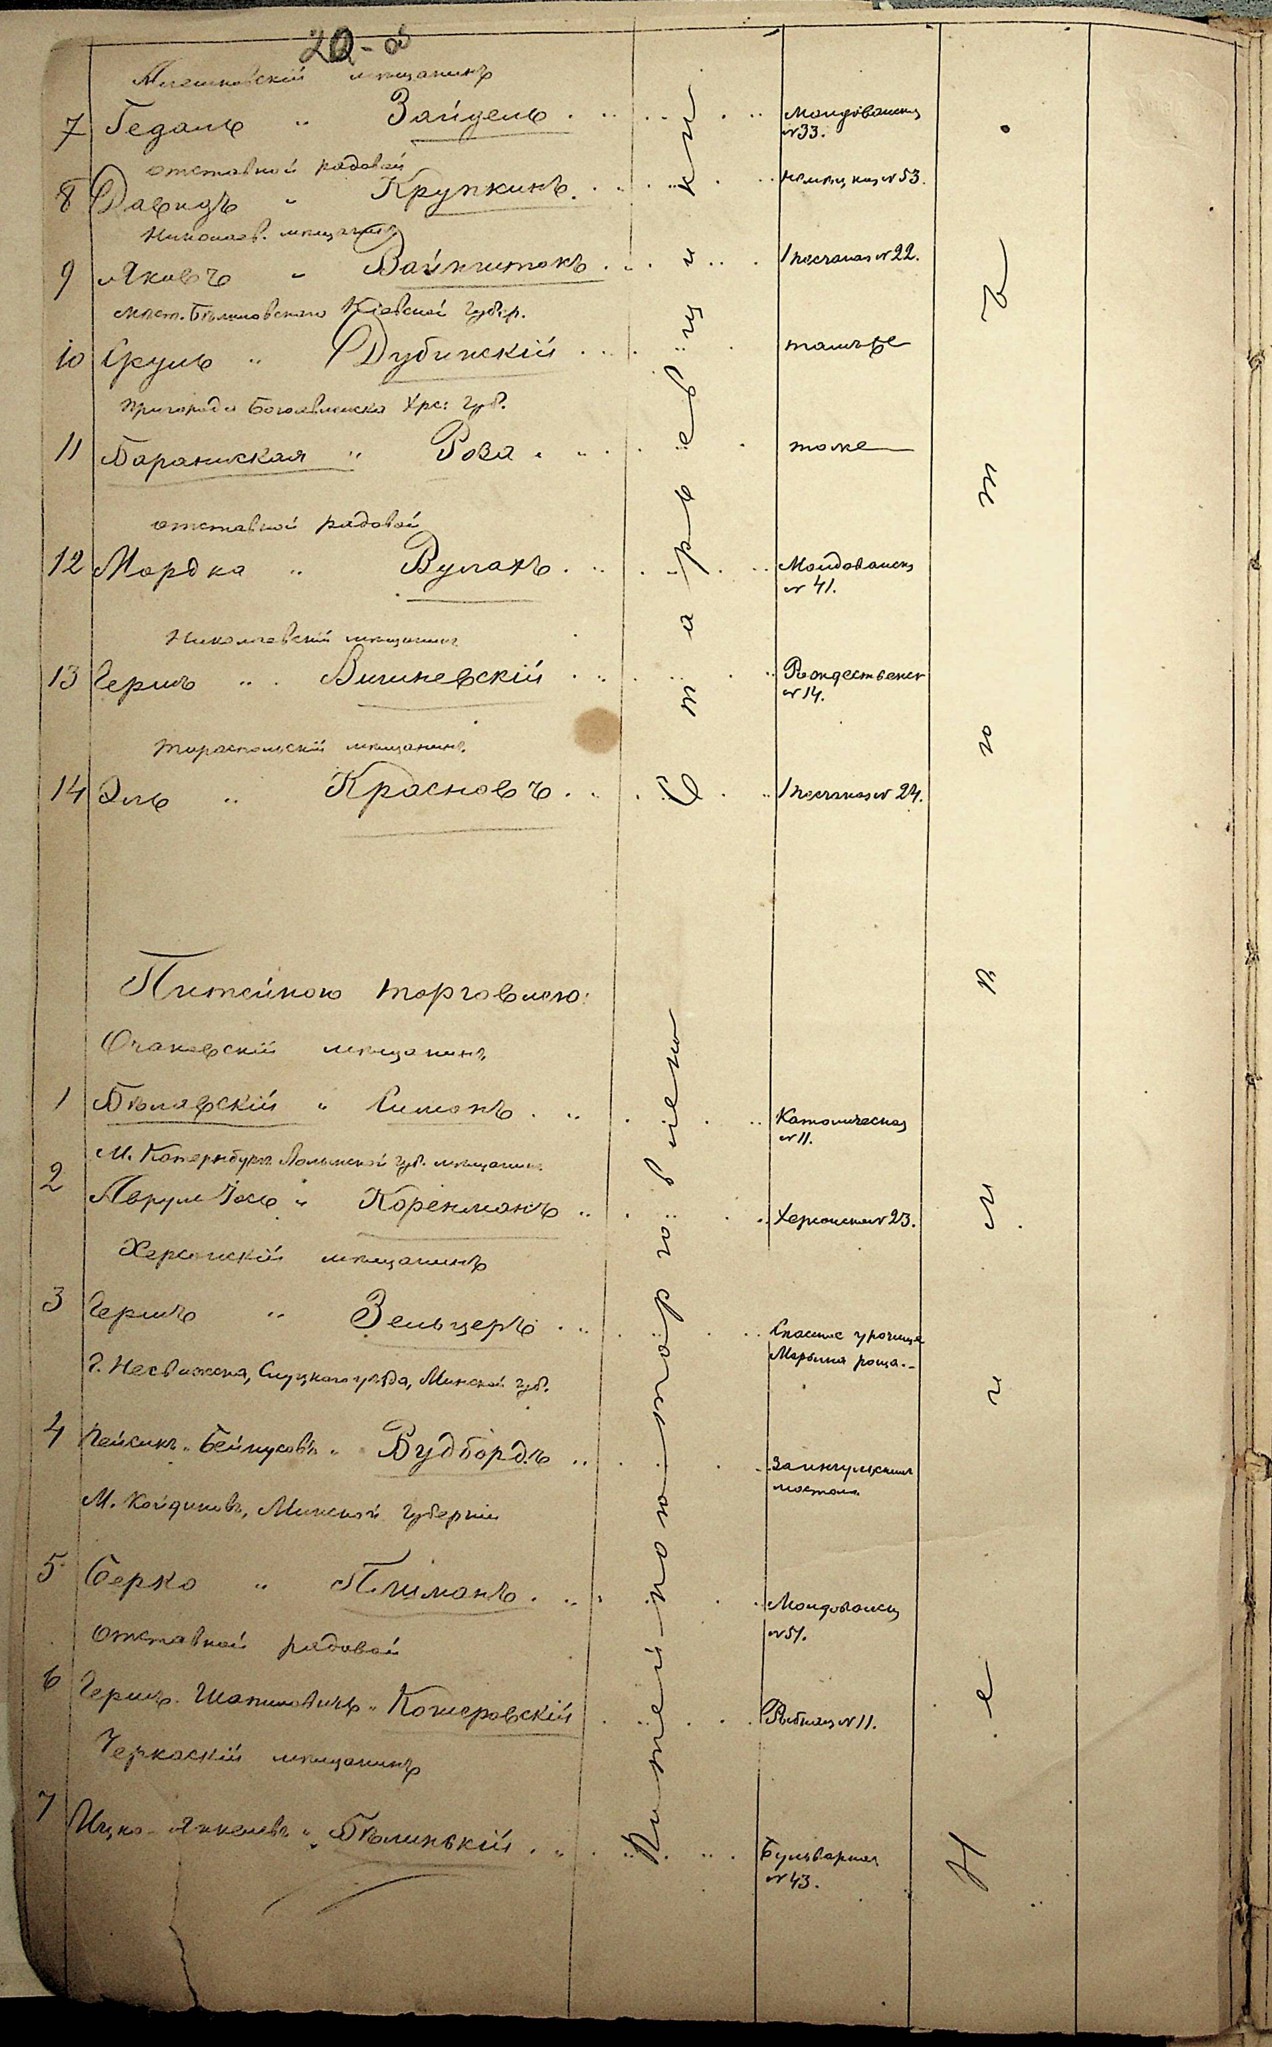 20-об
мѣщанинъ
7 Гедаль " Зайдель Молдованск №33.
отставной рядовой
8 Давидъ " Крупкинъ Нѣмецкая №53.
Николаев. мѣщанинъ
9 Яковъ " Вайнштокъ 1 песчаная №22.
Кіевской Губер.
10 Сруль " Дубинскій тамъ же
пригорода Богоявленска Хрс: Губ.
11 Баранская " Роза тоже
отставной рядовой
12 Мордка " Вулахъ Молдованск № 41.
Николаевскій мѣщанинъ
13 Гершъ " Вишневскій Рождественск №14.
Тираспольскій мѣщанинъ
14 Эль " Красновъ 1 песчаная № 24.
Старьевщики
Питейною торговлею:
Очаковскій мѣщанинъ
1 Бѣлявскій " Симонъ Католическая №11.
М. Катербургъ Волынской губ. мѣщанинъ
2 Аврум " Коренманъ Херсонская №23.
Херсонскій мѣщанинъ
3 Гершъ " Зельцеръ Спаское урочище Марьина роща.
г. Несвижска, Слуцкого уѣзда, Минской губ.
4 Лейбикъ " Беймусовъ " Вудбордъ За ингульскимъ мостомъ
М. Койдиновъ, Минской губерніи
5 Берко " Плиманъ Молдованск №51.
отставной рядовой
6 Гершъ Шапшовичъ " Кошеровскій Рыбная №11.
Черкаскій мѣщанинъ
7 Ицко Янкелевъ " Бѣлинькій Бульварная №43.
Питейною торговлею
Неимѣютъ.